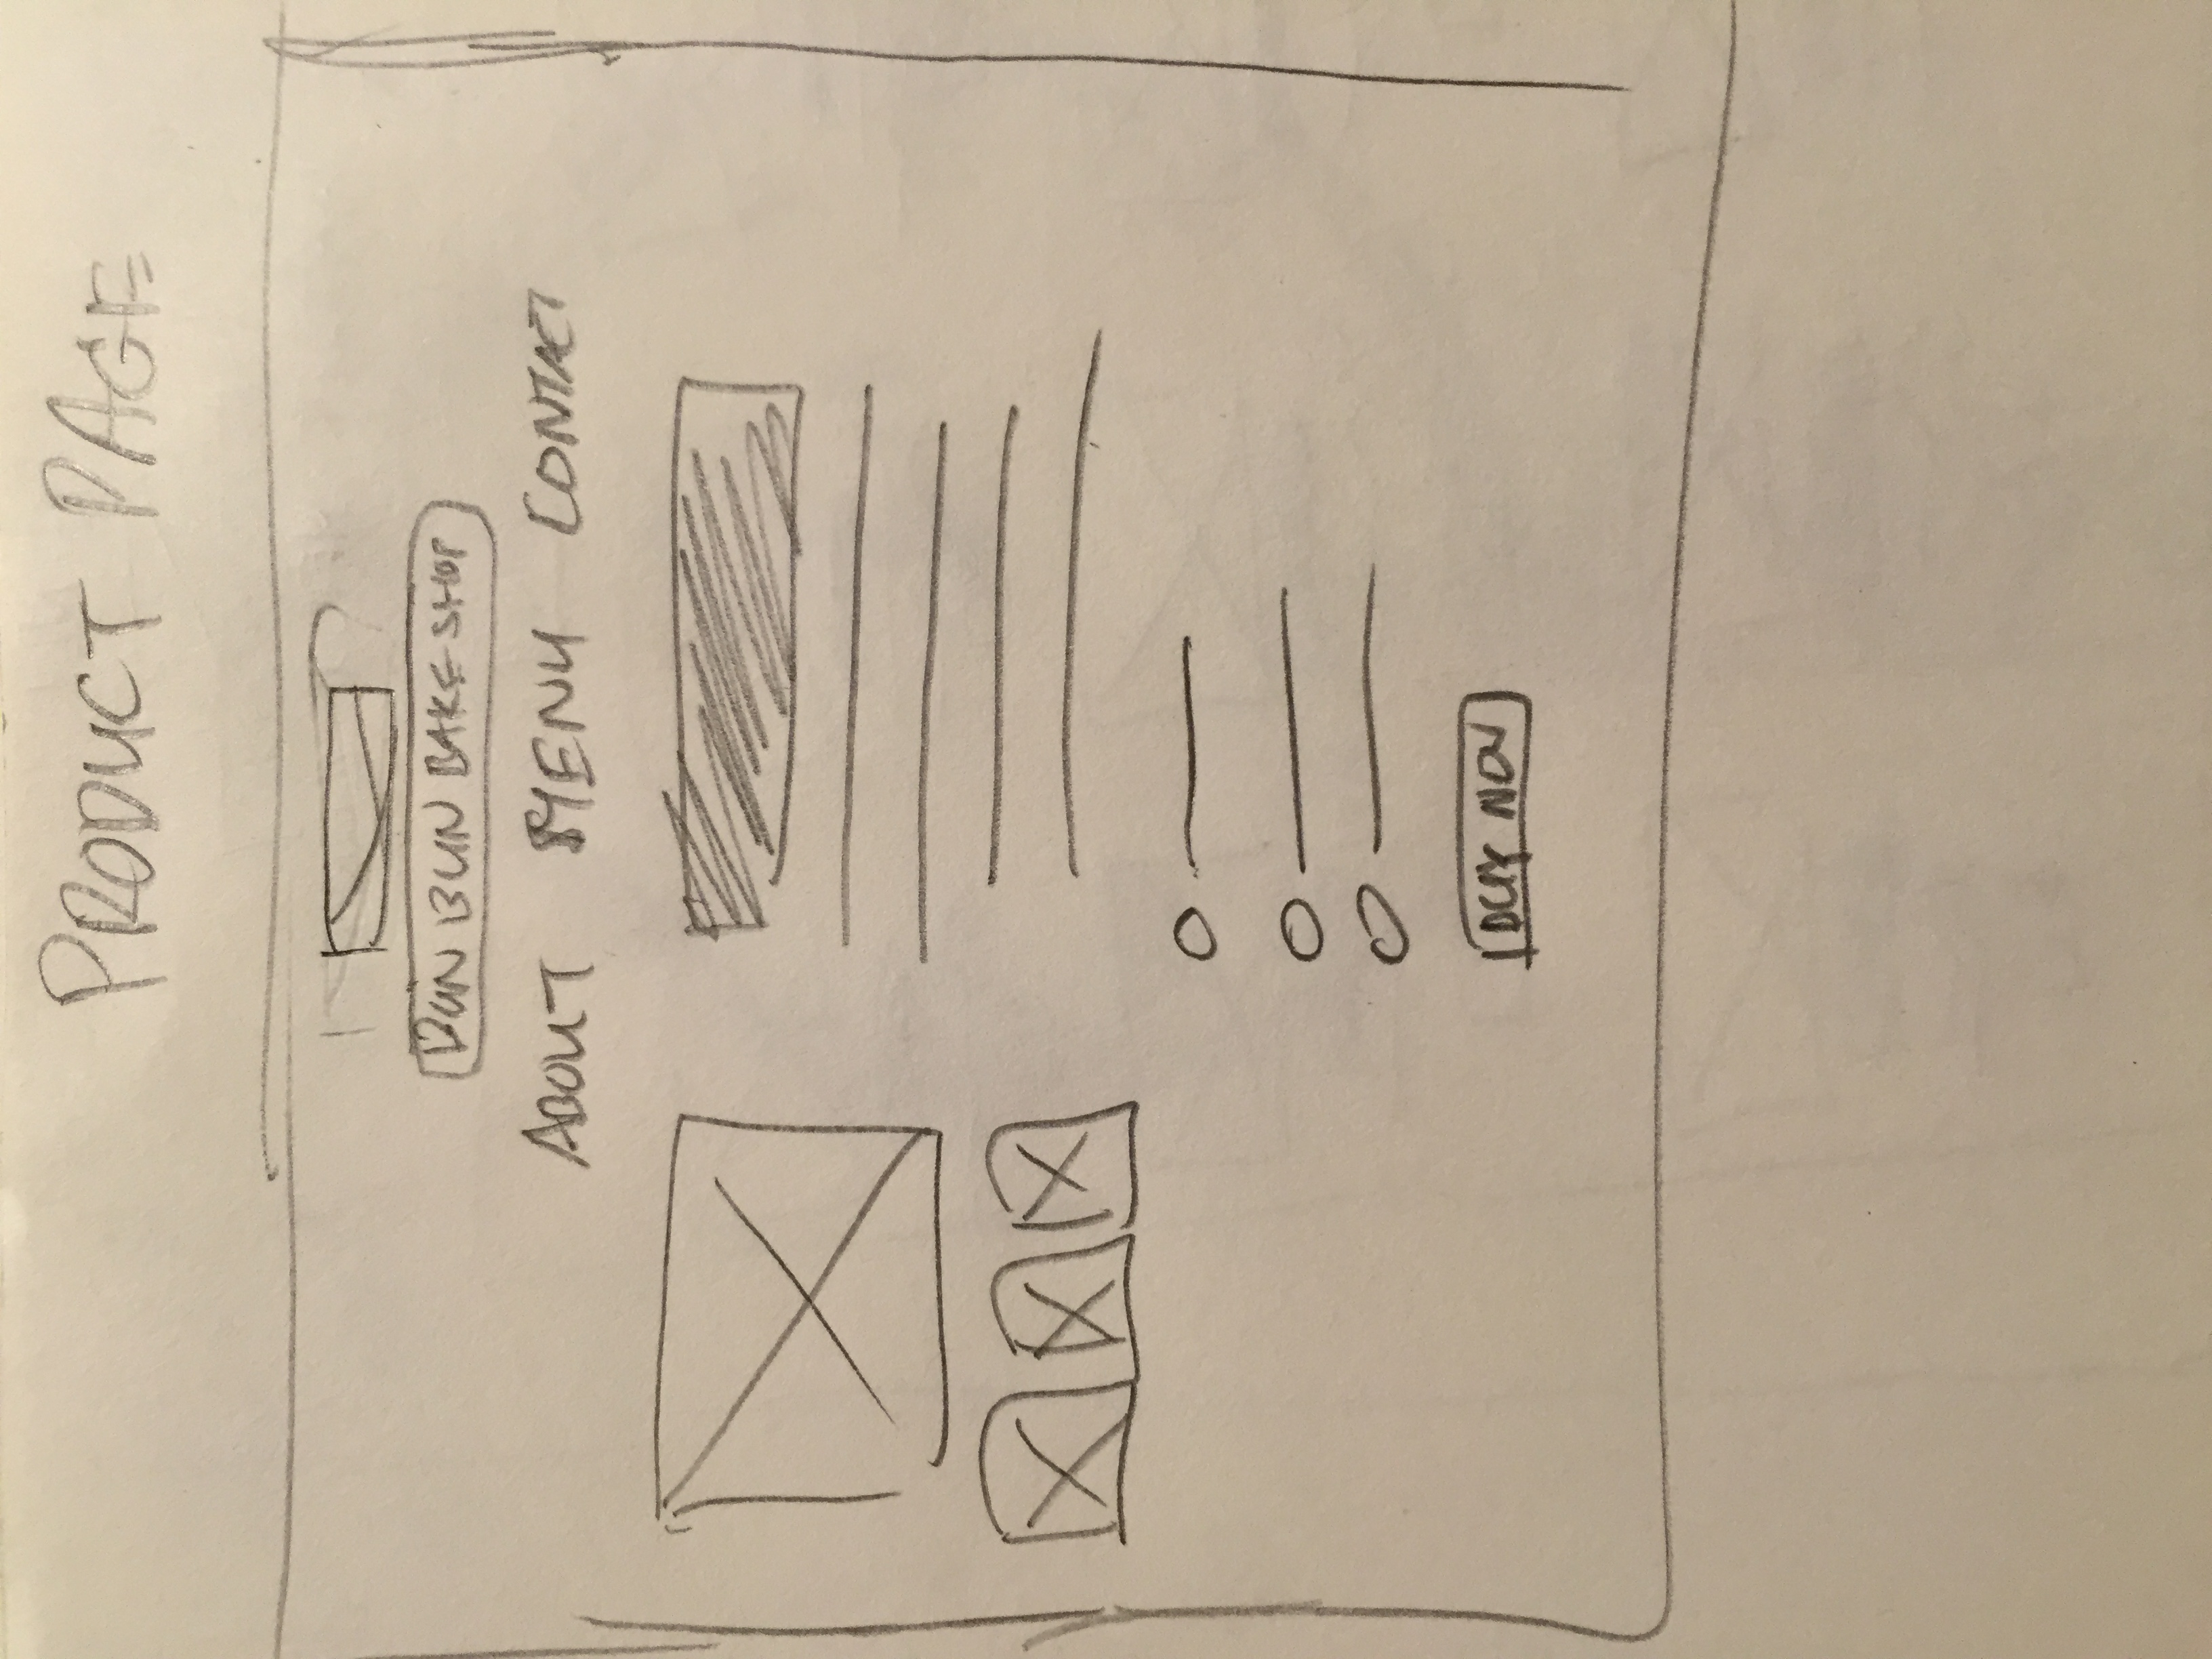 PRODUCT PAGE
BUN BUN BAKE SHOP
ABOUT MENU CONTACT
BUY NOW